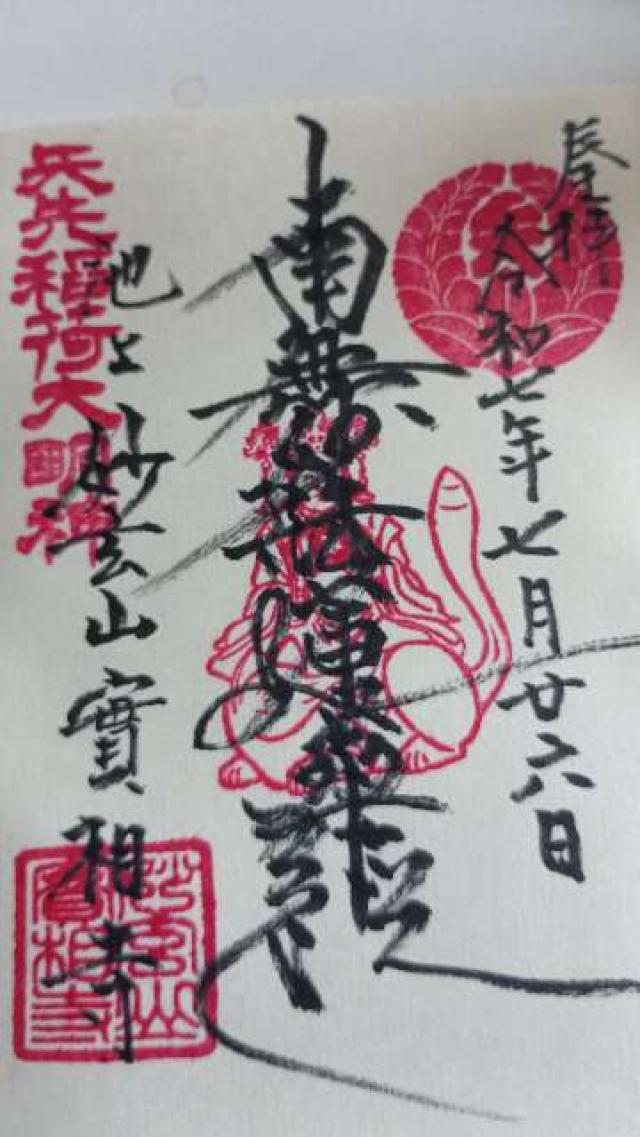 令和七年七月廿六日
南無妙法蓮華経
池上 妙雲山 實相寺
稲荷大明神
妙雲山
實相寺